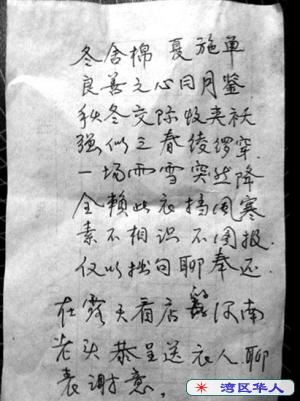 冬舍棉 夏施单
良善之心日月鉴
秋冬交际收夹袄
强似三春绫缪穿
一场雨雪突然降
全赖此衣挡风寒
素不相识不图报
仅以拙句聊奉还
在露天宿店 河南
老头恭呈送衣人.聊
表谢意。
湾区华人